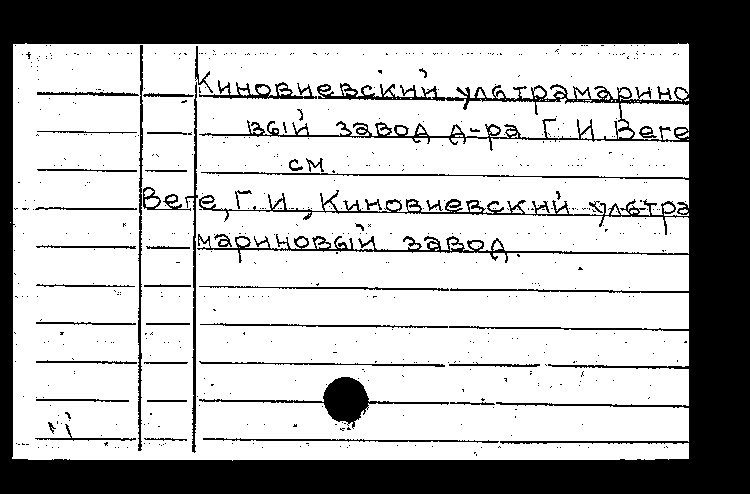 Киновиевский ультрамарино
вый завод д-ра Г. И. Веге
см.
Веге, Г. И., Киновиевский ультра
мариновый завод.